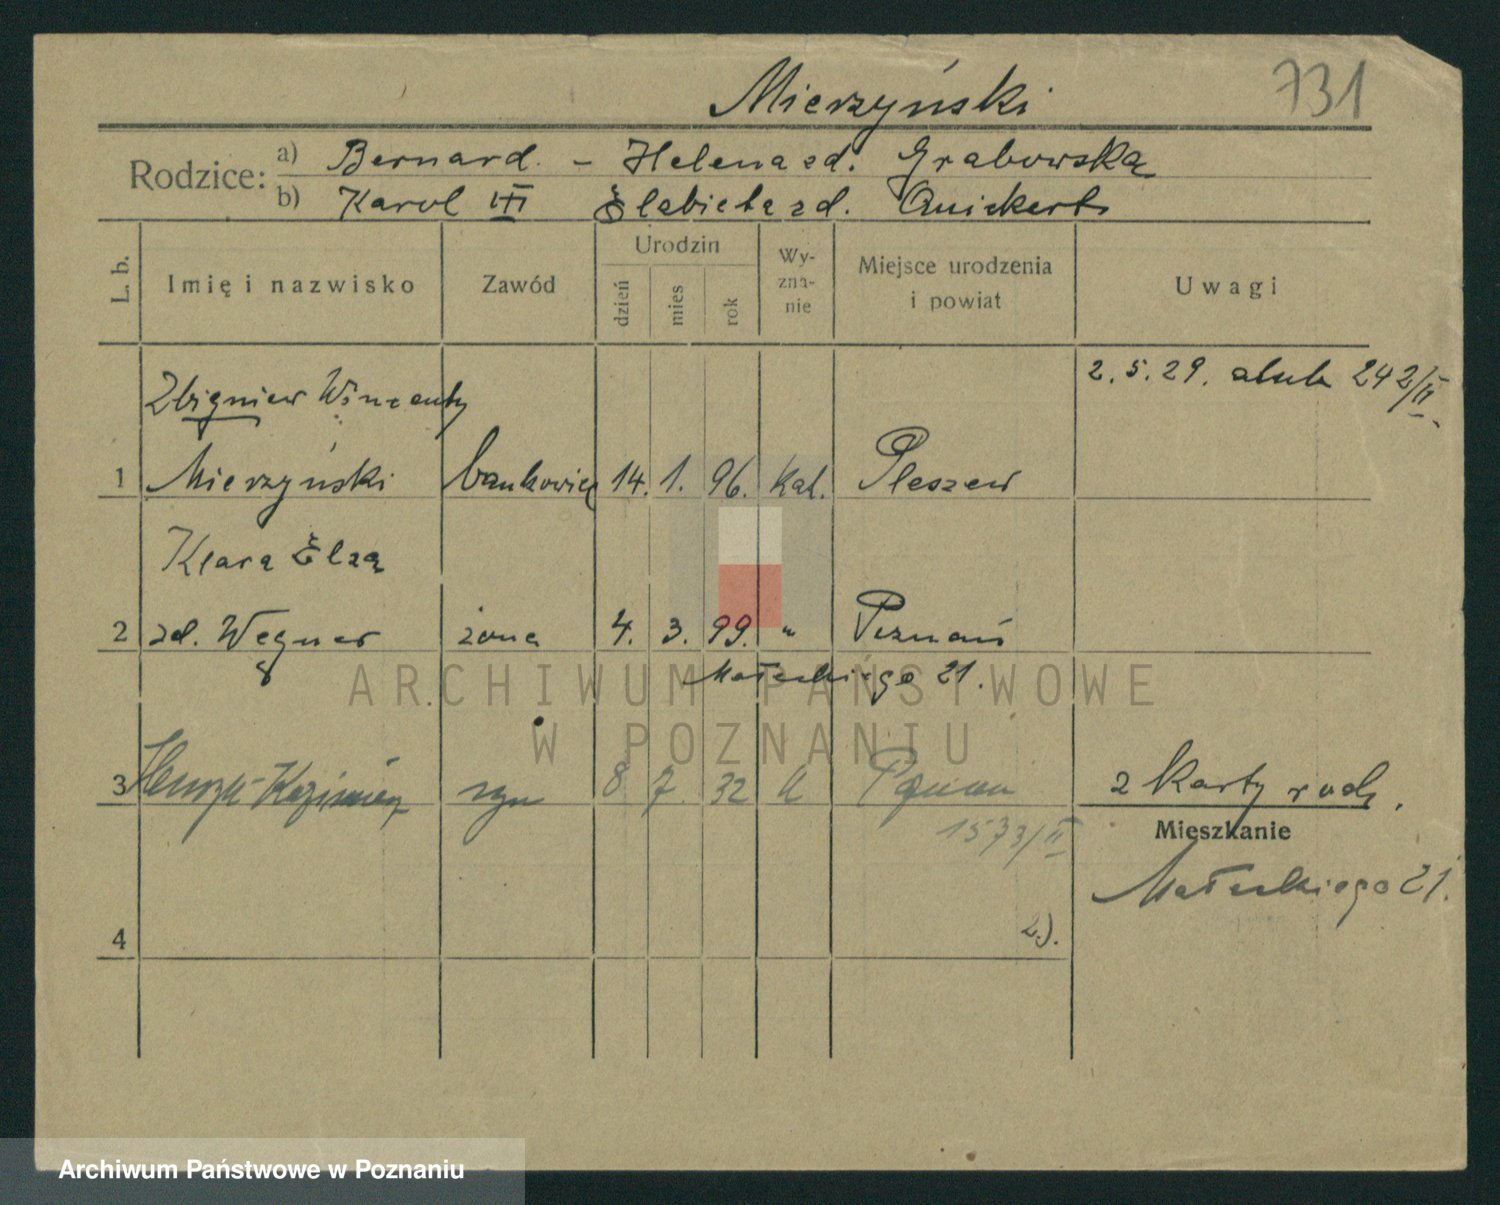 Mierzyński 731
Rodzice: a) Bernard. – Helena zd. Grabowska
b) Karol III Elżbieta zd. Quickert
L. b. Imię i nazwisko Zawód Urodzin dzień mies rok Wy-zna-nie Miejsce urodzenia i powiat Uwagi
Zbigniew Wincenty 2. 5. 29. ślub 242/II
1 Mierzyński bankowiec 14. 1. 96. kat. Pleszew
Klara Elza
2 zd. Wegner żona 4. 3. 99. " Poznań
Małeckiego 21.
3 Henryk Kazimierz syn 8 7 32 k Poznań 2 karty rodz.
1573/II Mieszkanie
Małeckiego 21.
4 2).
ARCHIWUM PAŃSTWOWE
W POZNANIU
Archiwum Państwowe w Poznaniu